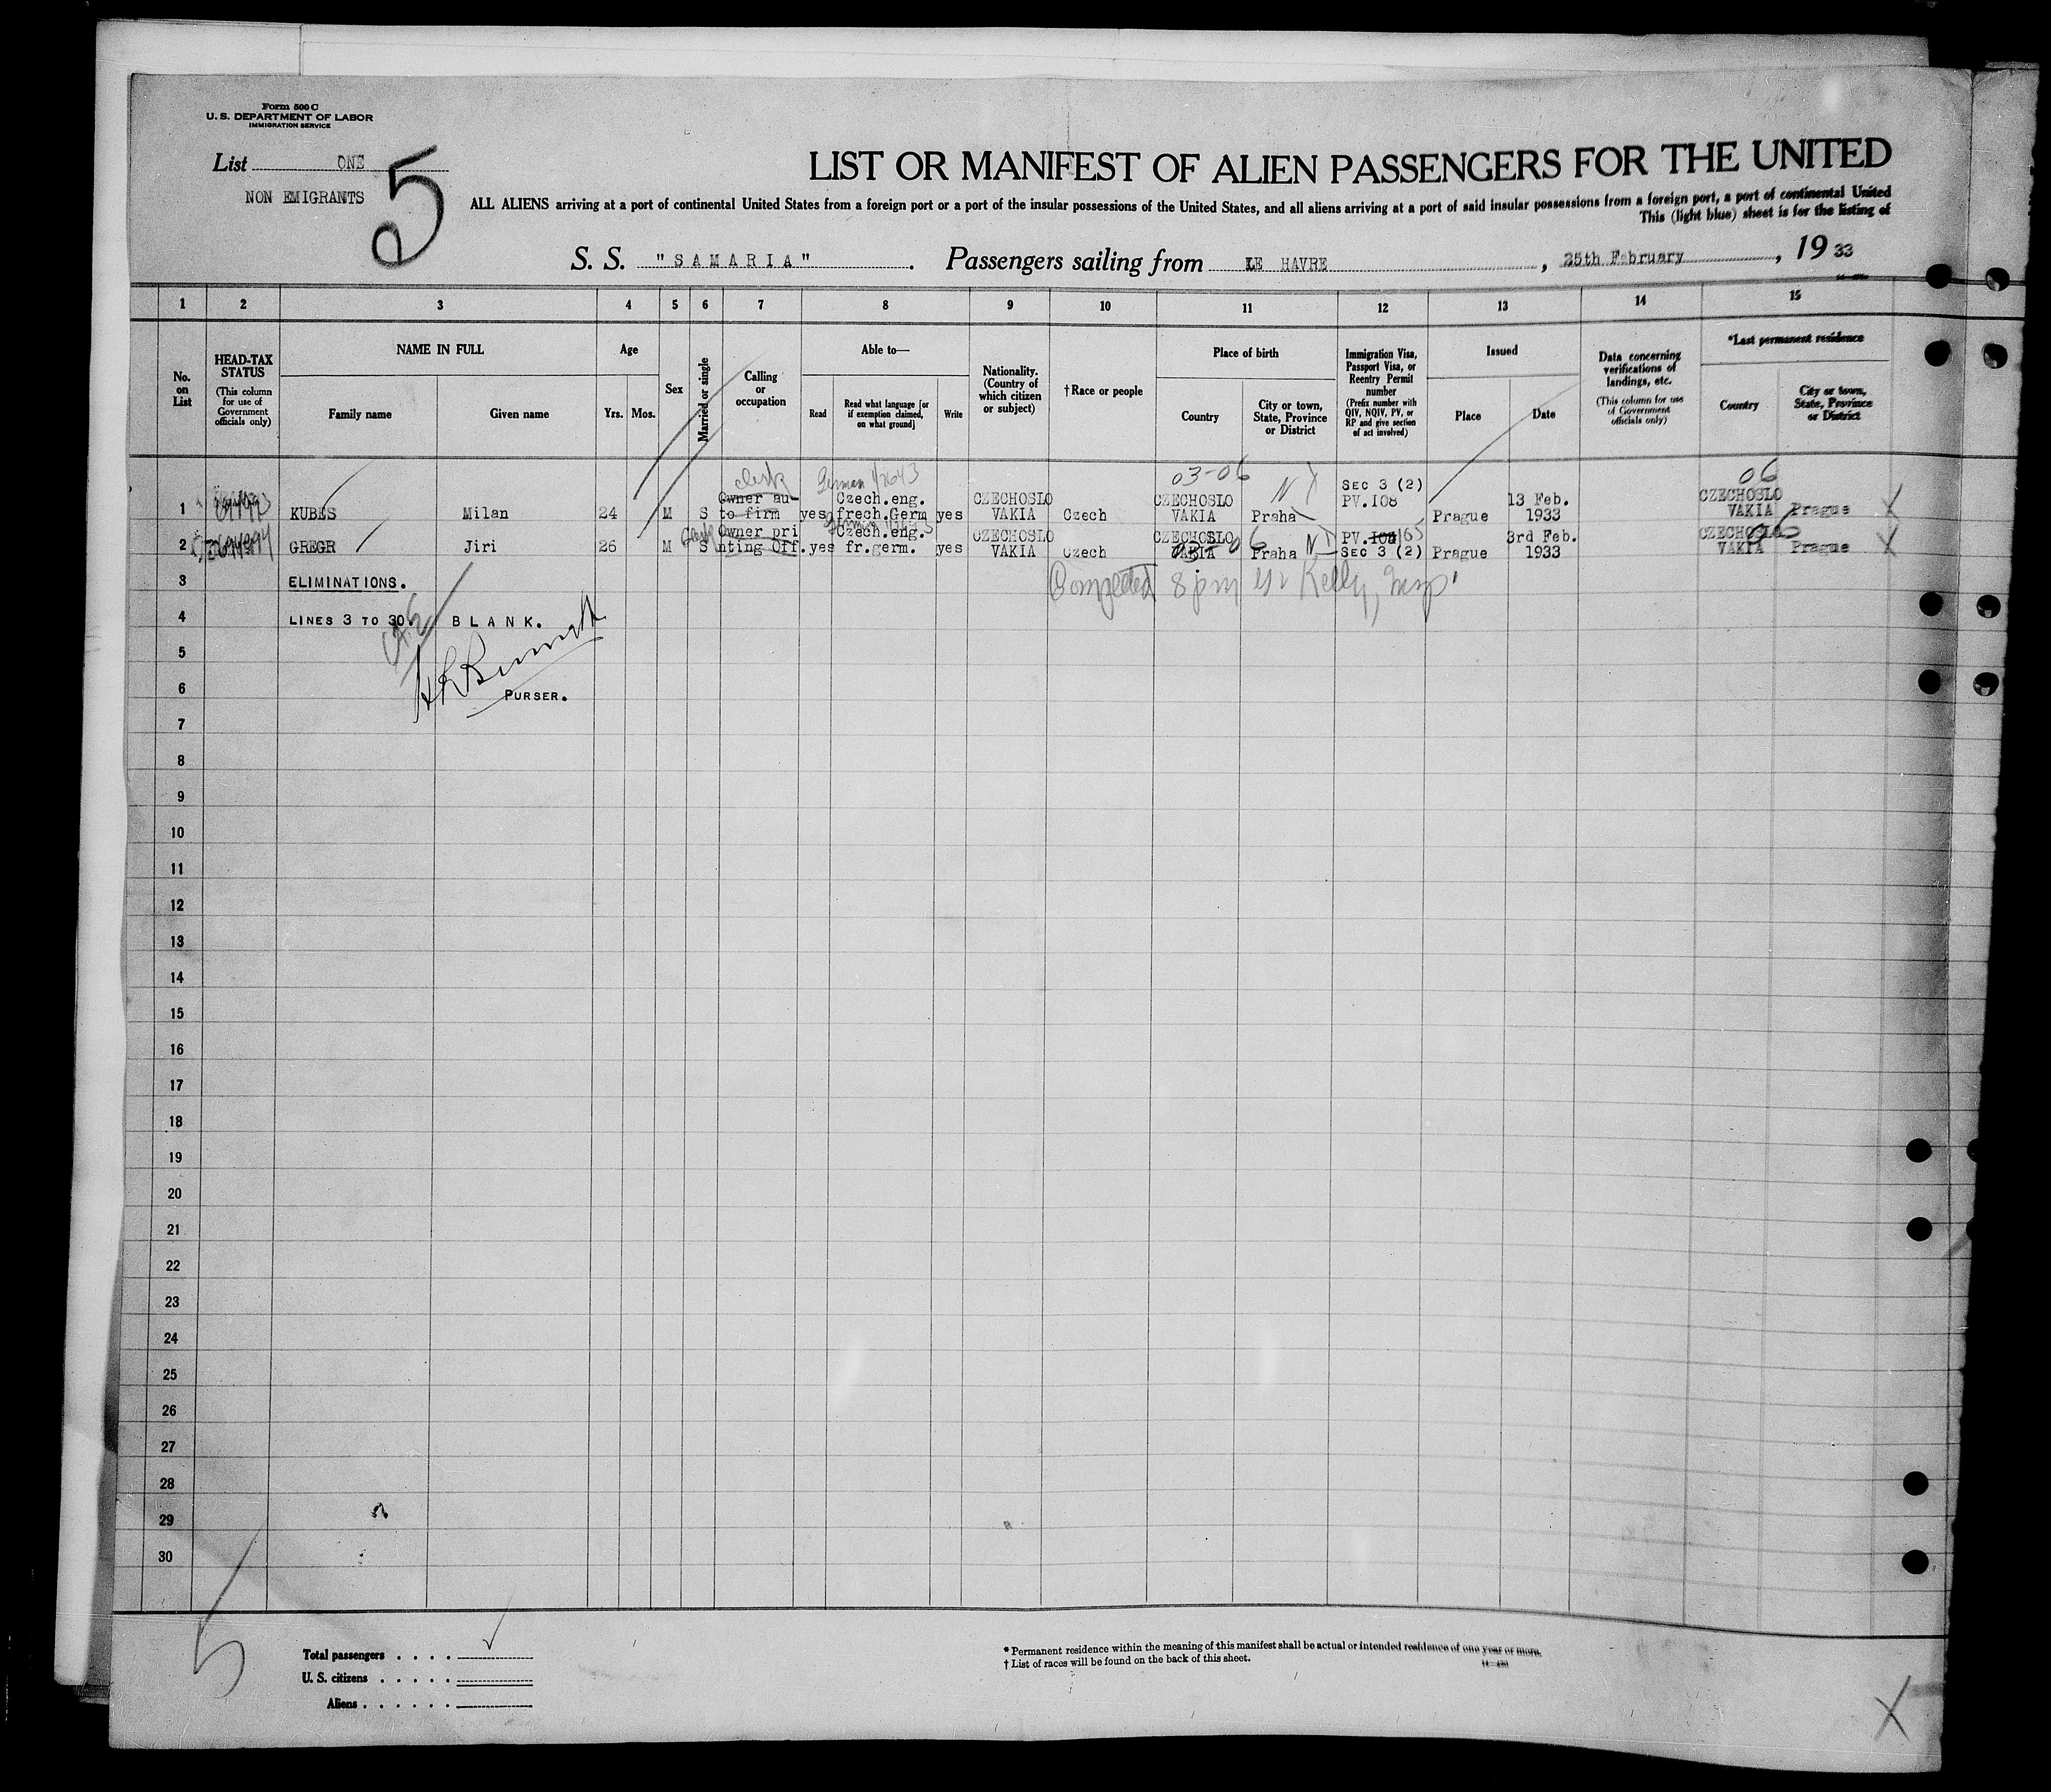 Form 500 C
U. S. DEPARTMENT OF LABOR
IMMIGRATION SERVICE
List ONE
NON EMIGRANTS
5
LIST OR MANIFEST OF ALIEN PASSENGERS FOR THE UNITED
ALL ALIENS arriving at a port of continental United States from a foreign port or a port of the insular possessions of the United States, and all aliens arriving at a port of said insular possessions from a foreign port, a port of continental United
This (light blue) sheet is for the listing of
S. S. "SAMARIA". Passengers sailing from LE HAVRE, 25th February, 19 33
1 2 3 4 5 6 7 8 9 10 11 12 13 14 15
No. on List
HEAD-TAX STATUS
(This column for use of Government officials only)
NAME IN FULL
Family name
Given name
Age
Yrs. Mos.
Sex
Married or single
Calling or occupation
Able to—
Read
Read what language [or if exemption claimed, on what ground]
Write
Nationality. (Country of which citizen or subject)
†Race or people
Place of birth
Country
City or town, State, Province or District
Immigration Visa, Passport Visa, or Reentry Permit number
(Prefix number with QIV, NQIV, PV, or RP and give section of act involved)
Issued
Place
Date
Data concerning verifications of landings, etc.
(This column for use of Government officials only)
*Last permanent residence
Country
City or town, State, Province or District
clerk German 4/2643 03-06 N 06
Owner au- Czech.eng. CZECHOSLO CZECHOSLO SEC 3 (2) PV.108 13 Feb. CZECHOSLO
1 KUBES Milan 24 M S to firm yes frech.Germ yes VAKIA Czech VAKIA Praha Prague 1933 VAKIA Prague X
clerk German 03-06 N 06
Owner pri Czech.eng. CZECHOSLO CZECHOSLO PV. 165 3rd Feb. CZECHOSLO
2 GREGR Jiri 26 M S nting Off. yes fr.germ. yes VAKIA Czech VAKIA Praha SEC 3 (2) Prague 1933 VAKIA Prague X
3 ELIMINATIONS.
Completed 8 pm Kelly, Insp
4 LINES 3 TO 30. BLANK.
5
6 PURSER.
7
8
9
10
11
12
13
14
15
16
17
18
19
20
21
22
23
24
25
26
27
28
29
30
5
Total passengers . . . .
U. S. citizens . . . . .
Aliens . . . . . .
* Permanent residence within the meaning of this manifest shall be actual or intended residence of one year or more.
† List of races will be found on the back of this sheet.
X